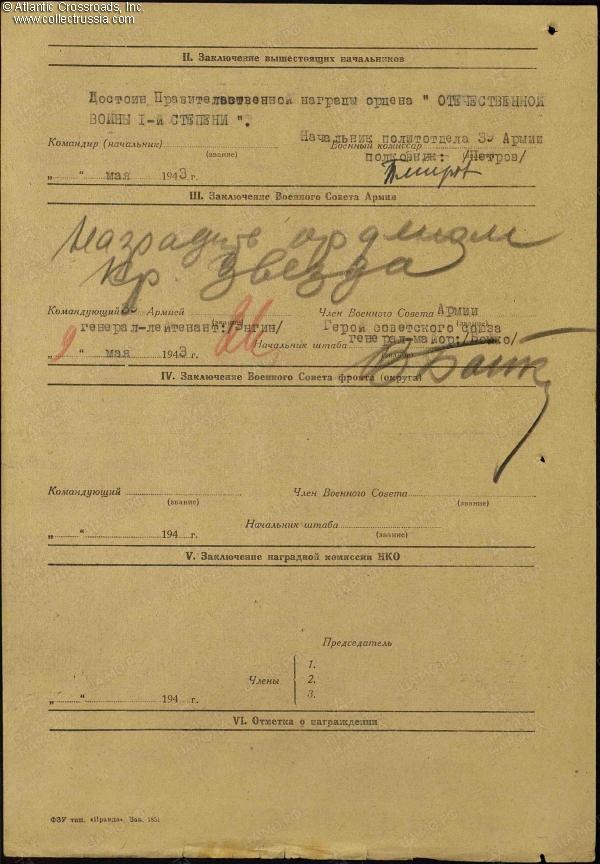 © Atlantic Crossroads, Inc.
www.collectrussia.com
II. Заключение вышестоящих начальников
Достоин Правительственной награды ордена " ОТЕЧЕСТВЕННОЙ
ВОЙНЫ I-й СТЕПЕНИ ".
Начальник политотдела 39 Армии
Командир (начальник) Военный комиссар
(звание)
полковник: /Петров/
„ “ мая 1943 г.
III. Заключение Военного Совета Армии
Наградить орденом
Кр. Звезда
Командующий 39 Армией Член Военного Совета Армии
(звание) (звание)
генерал-лейтенант: /Зыгин/ Герой советского союза
Начальник штаба генерал-майор: /Бойко/
(звание)
„ 9 “ мая 1943 г.
IV. Заключение Военного Совета фронта (округа)
Командующий Член Военного Совета
(звание) (звание)
Начальник штаба
(звание)
„ “ 194 г.
V. Заключение наградной комиссии НКО
Председатель
1.
Члены 2.
3.
„ “ 194 г.
VI. Отметка о награждении
ФЗУ тип. «Правда». Зак. 1851